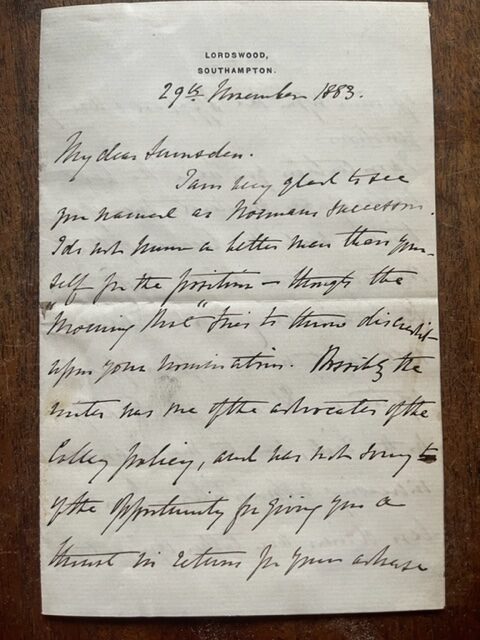 LORDSWOOD,
SOUTHAMPTON.
29th November 1883.
My dear Lumsden.
I am very glad to see
you named as Norman's successor.
I do not know a better man than your-
self for the position – though the
"Morning Post" tries to throw discredit
upon your nomination. Possibly the
writer was one of the advocates of the
Colley policy, and was not sorry to
of the opportunity for giving you a
thrust in return for your adverse